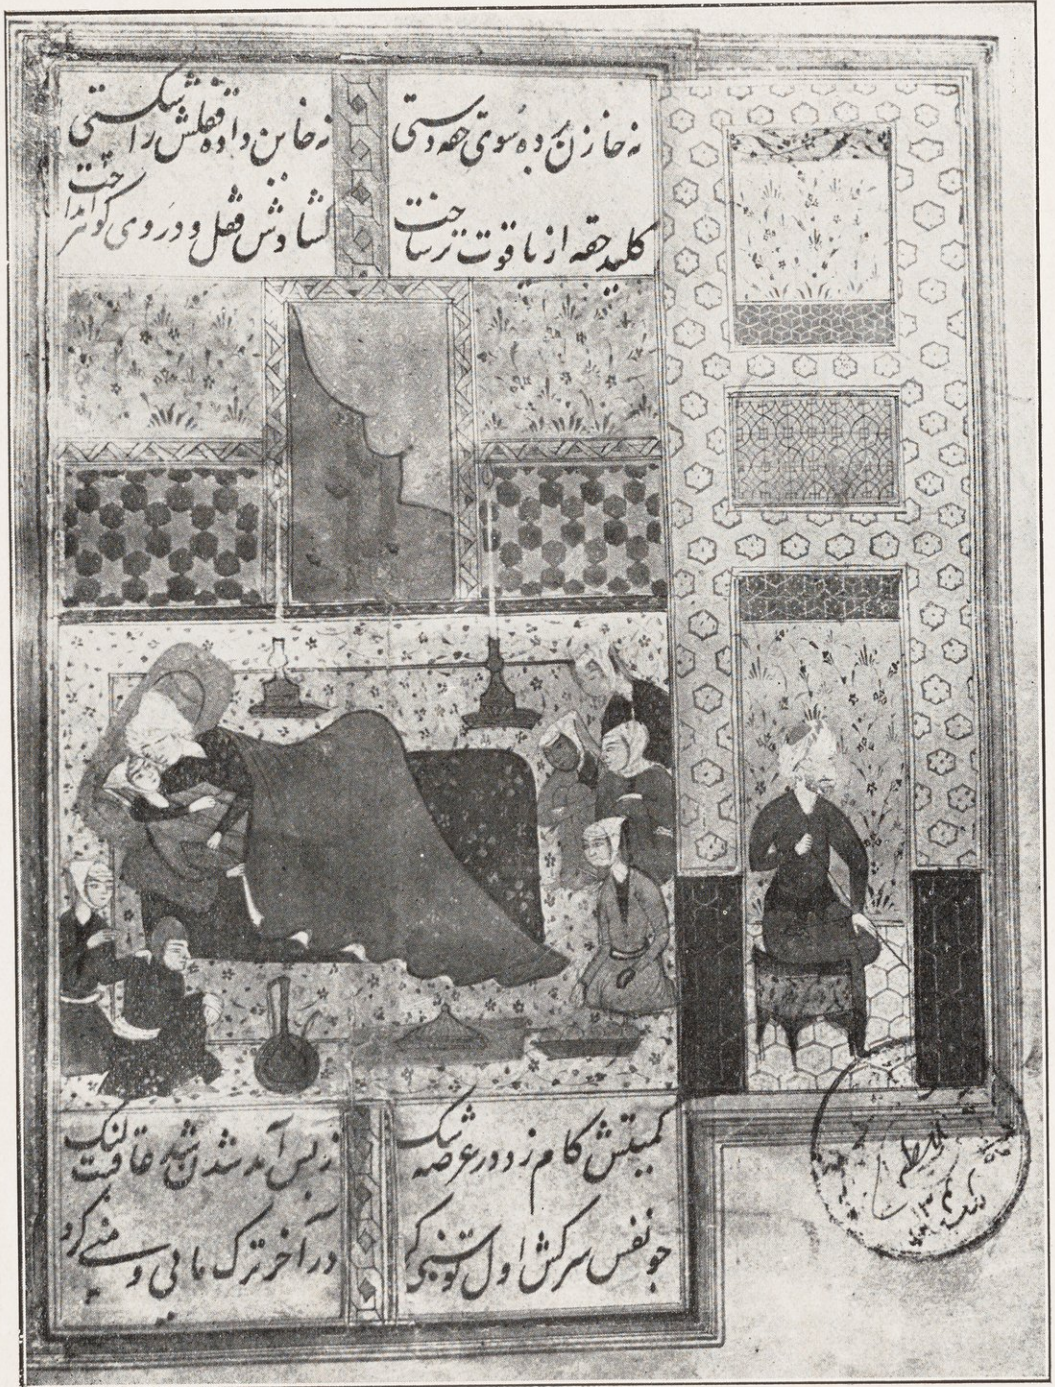 نه خازن برده سوی حقه دستی
نه خاین داده قفلش را شکستی
کلید حقه از یاقوت تر ساخت
کشادش قفل و در وی کوهر انداخت
کمیتش کام زد در عرصه تنک
ز بس آمد شدن شد عاقبت لنک
چو نفس سرکش اول توسنی کرد
در آخر ترک مائی و منی کرد